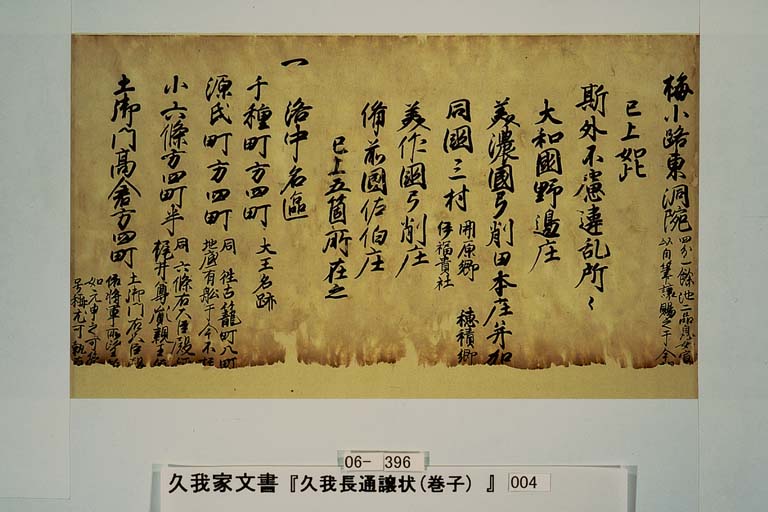 梅小路東洞院 四分一餘池二品息女官
以自筆譲賜之于今
已上如此
斯外不慮違乱所々
大和國野邊庄
美濃國弓削田本庄并加
同國三村 開原郷 穂積郷
伊福貴社
美作國弓削庄
備前國佐伯庄
已上五箇所在之
一 洛中名區
千種町方四町 大王名跡
源氏町方四町 同 性古籠町八町
地底有船于今不
小六條方四町半 同 六條右大臣殿
梶井尊胤親王
土御門高倉方四町 土御門右大臣殿
將軍所望
如元申之可
号極尤可
06- 396
久我家文書『久我長通譲状(巻子) 』 004